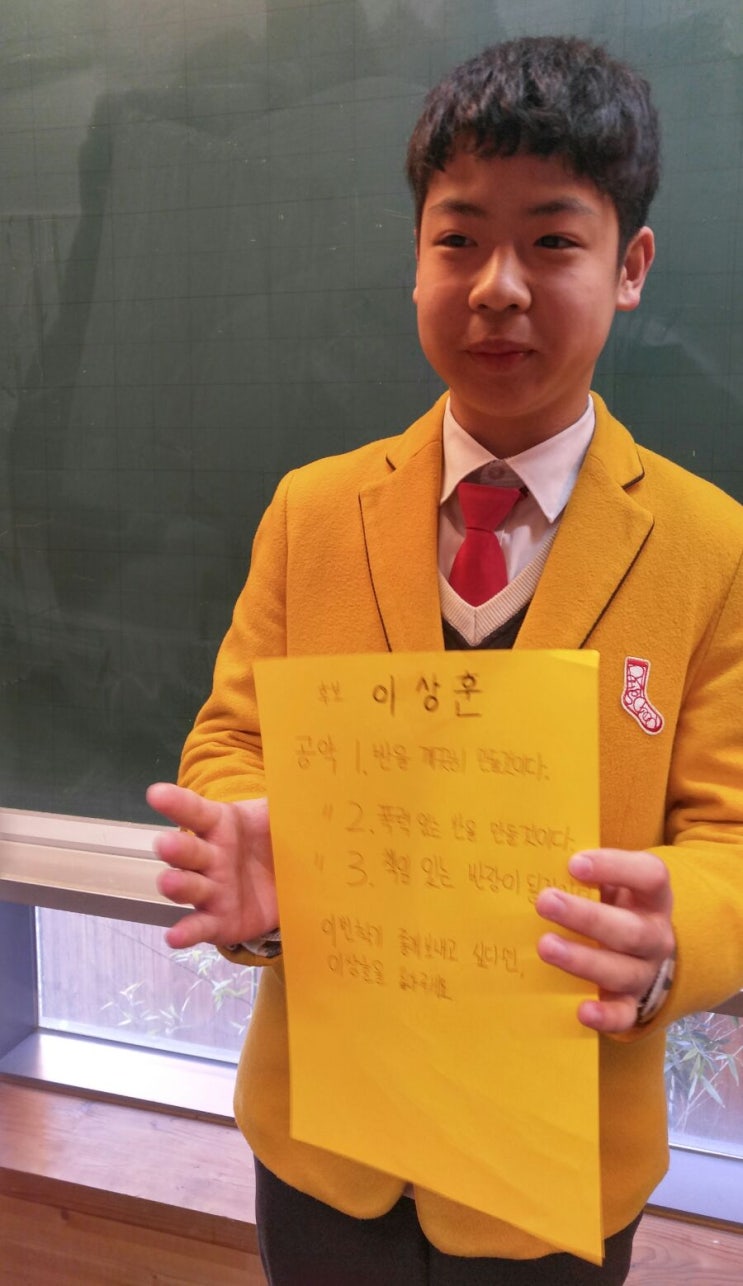 후보 이상훈
공약 1. 반을 깨끗이 만들것이다.
" 2. 폭력 없는 반을 만들것이다.
" 3. 책임 있는 반장이 될것이다
이번학기 즐겁게보내고 싶다면,
이상훈을 뽑아주세요